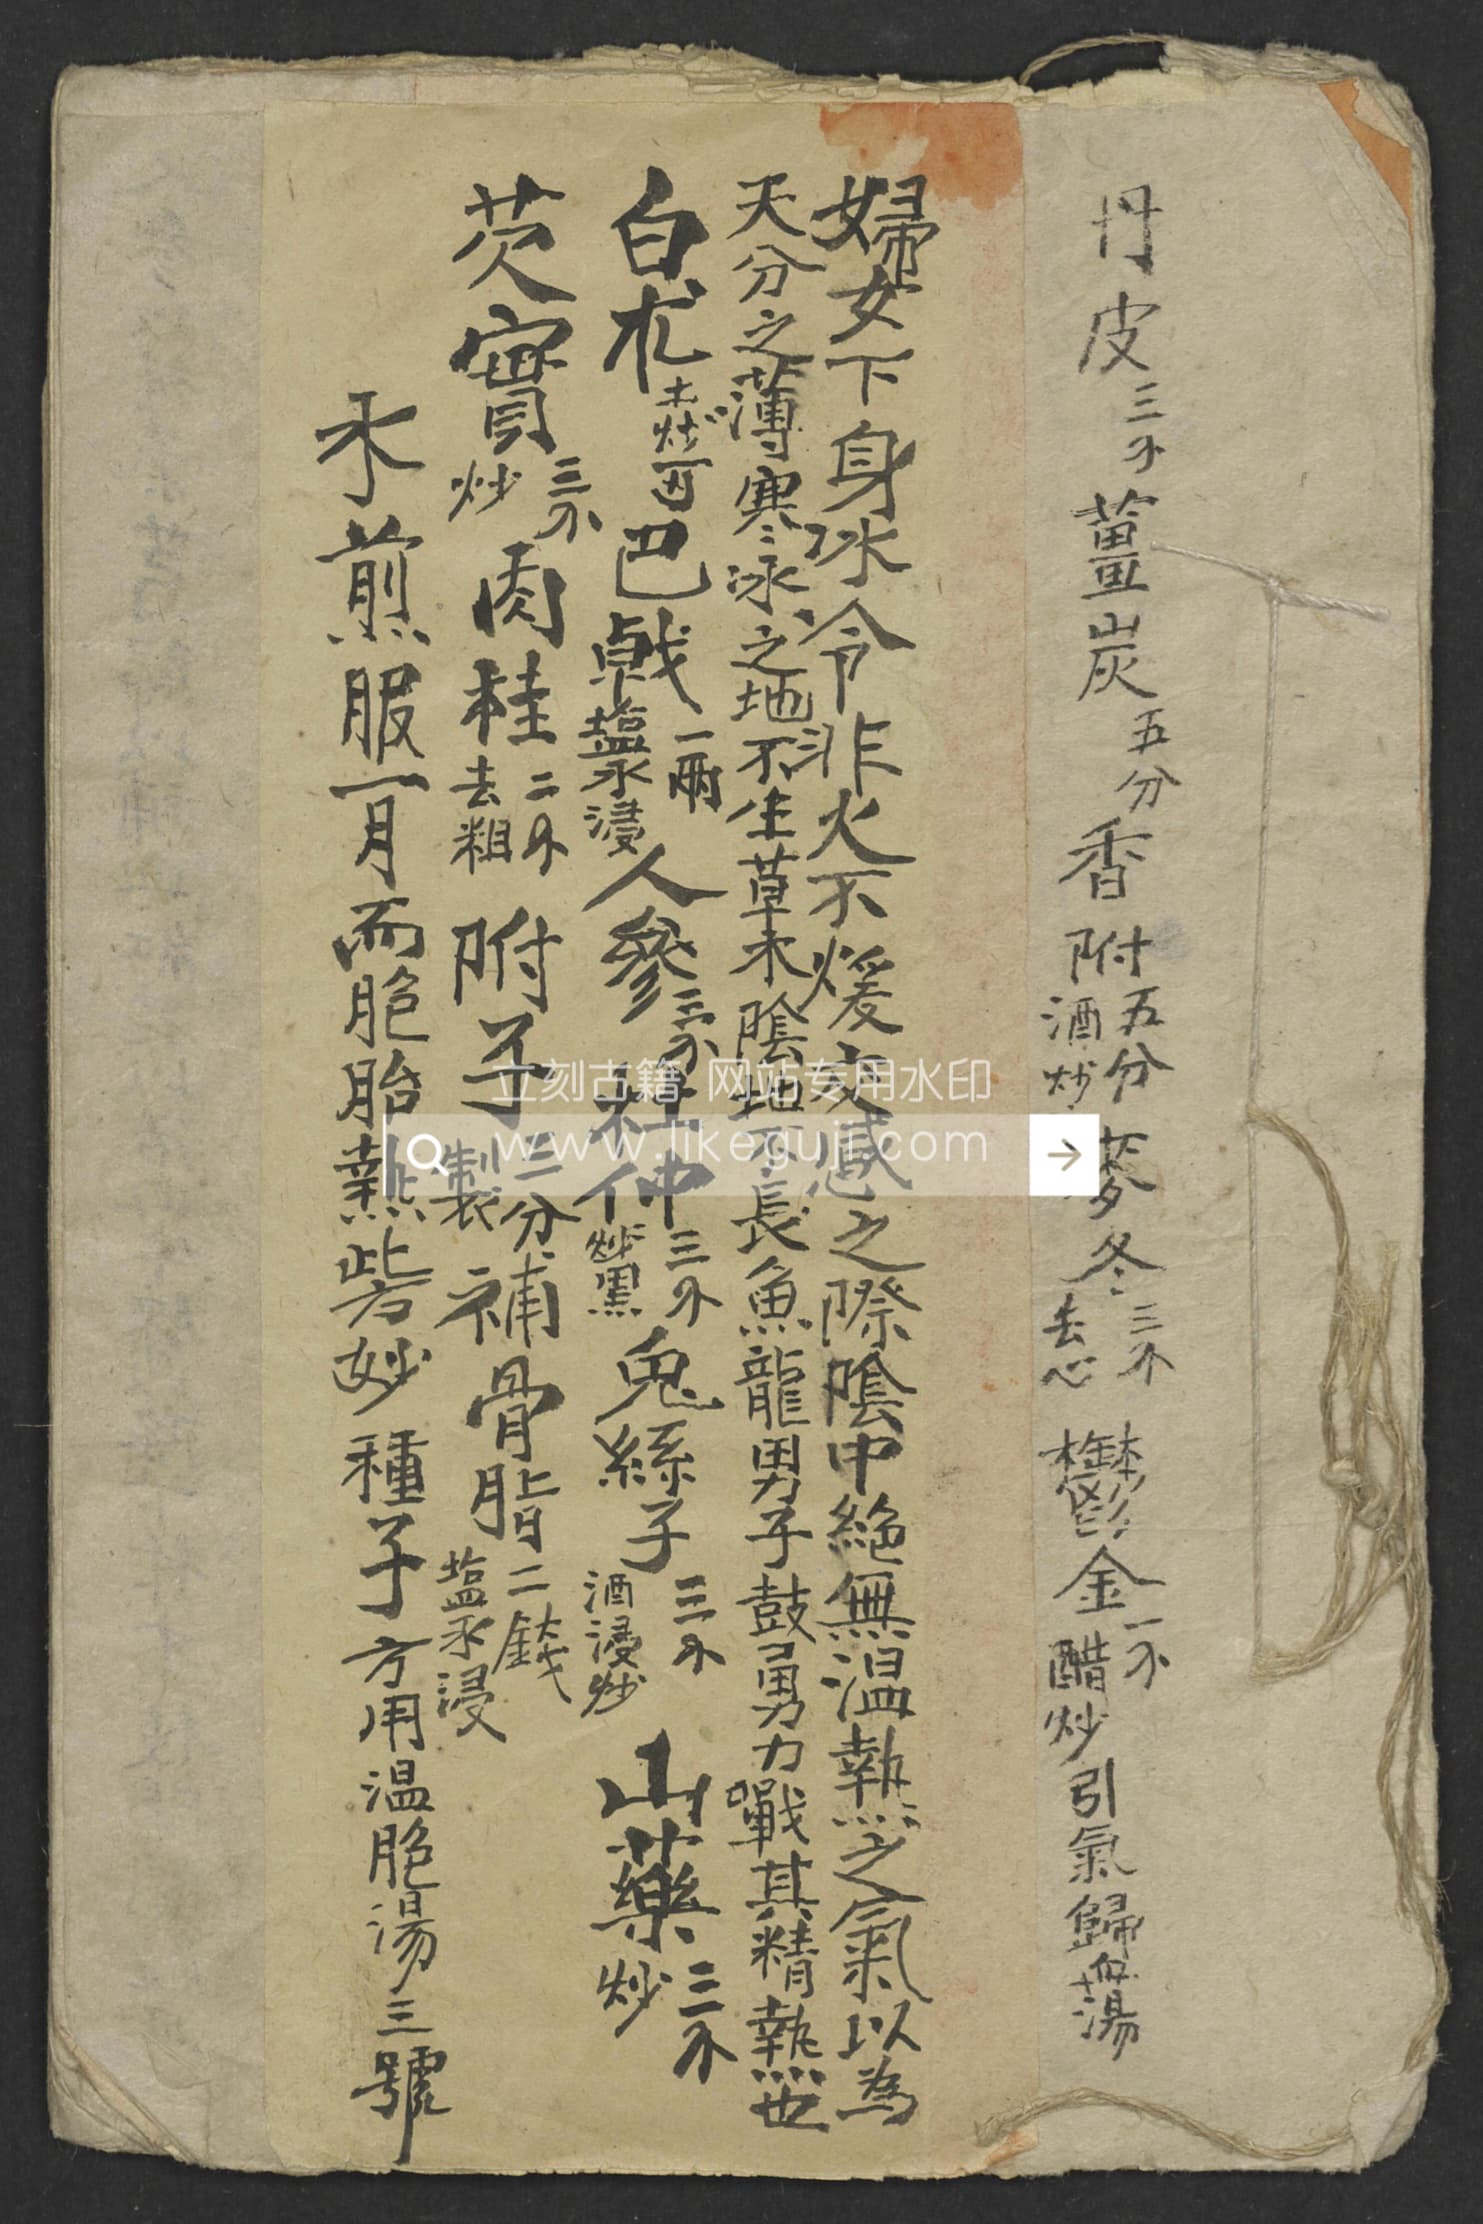 丹皮三个薑炭五分香附五分酒炒麥冬三个去心鬱金一个醋炒引氣歸血湯
婦女下身冰令非火不煖交感之際陰中絕無温熱之氣以為
天分之薄寒冰之地不生草木陰地不長魚龍男子鼓勇力戰其精熱也
白朮土炒巴戟一兩塩水浸人參三个杜仲三个炒黑兔絲子三个酒浸炒山藥三个炒
芡實三个炒肉桂二个去粗附子三分製補骨脂二錢塩水浸
水煎服一月而脃胎熱此方妙種子方用温脃湯三號
立刻古籍 网站专用水印
www.likeguji.com